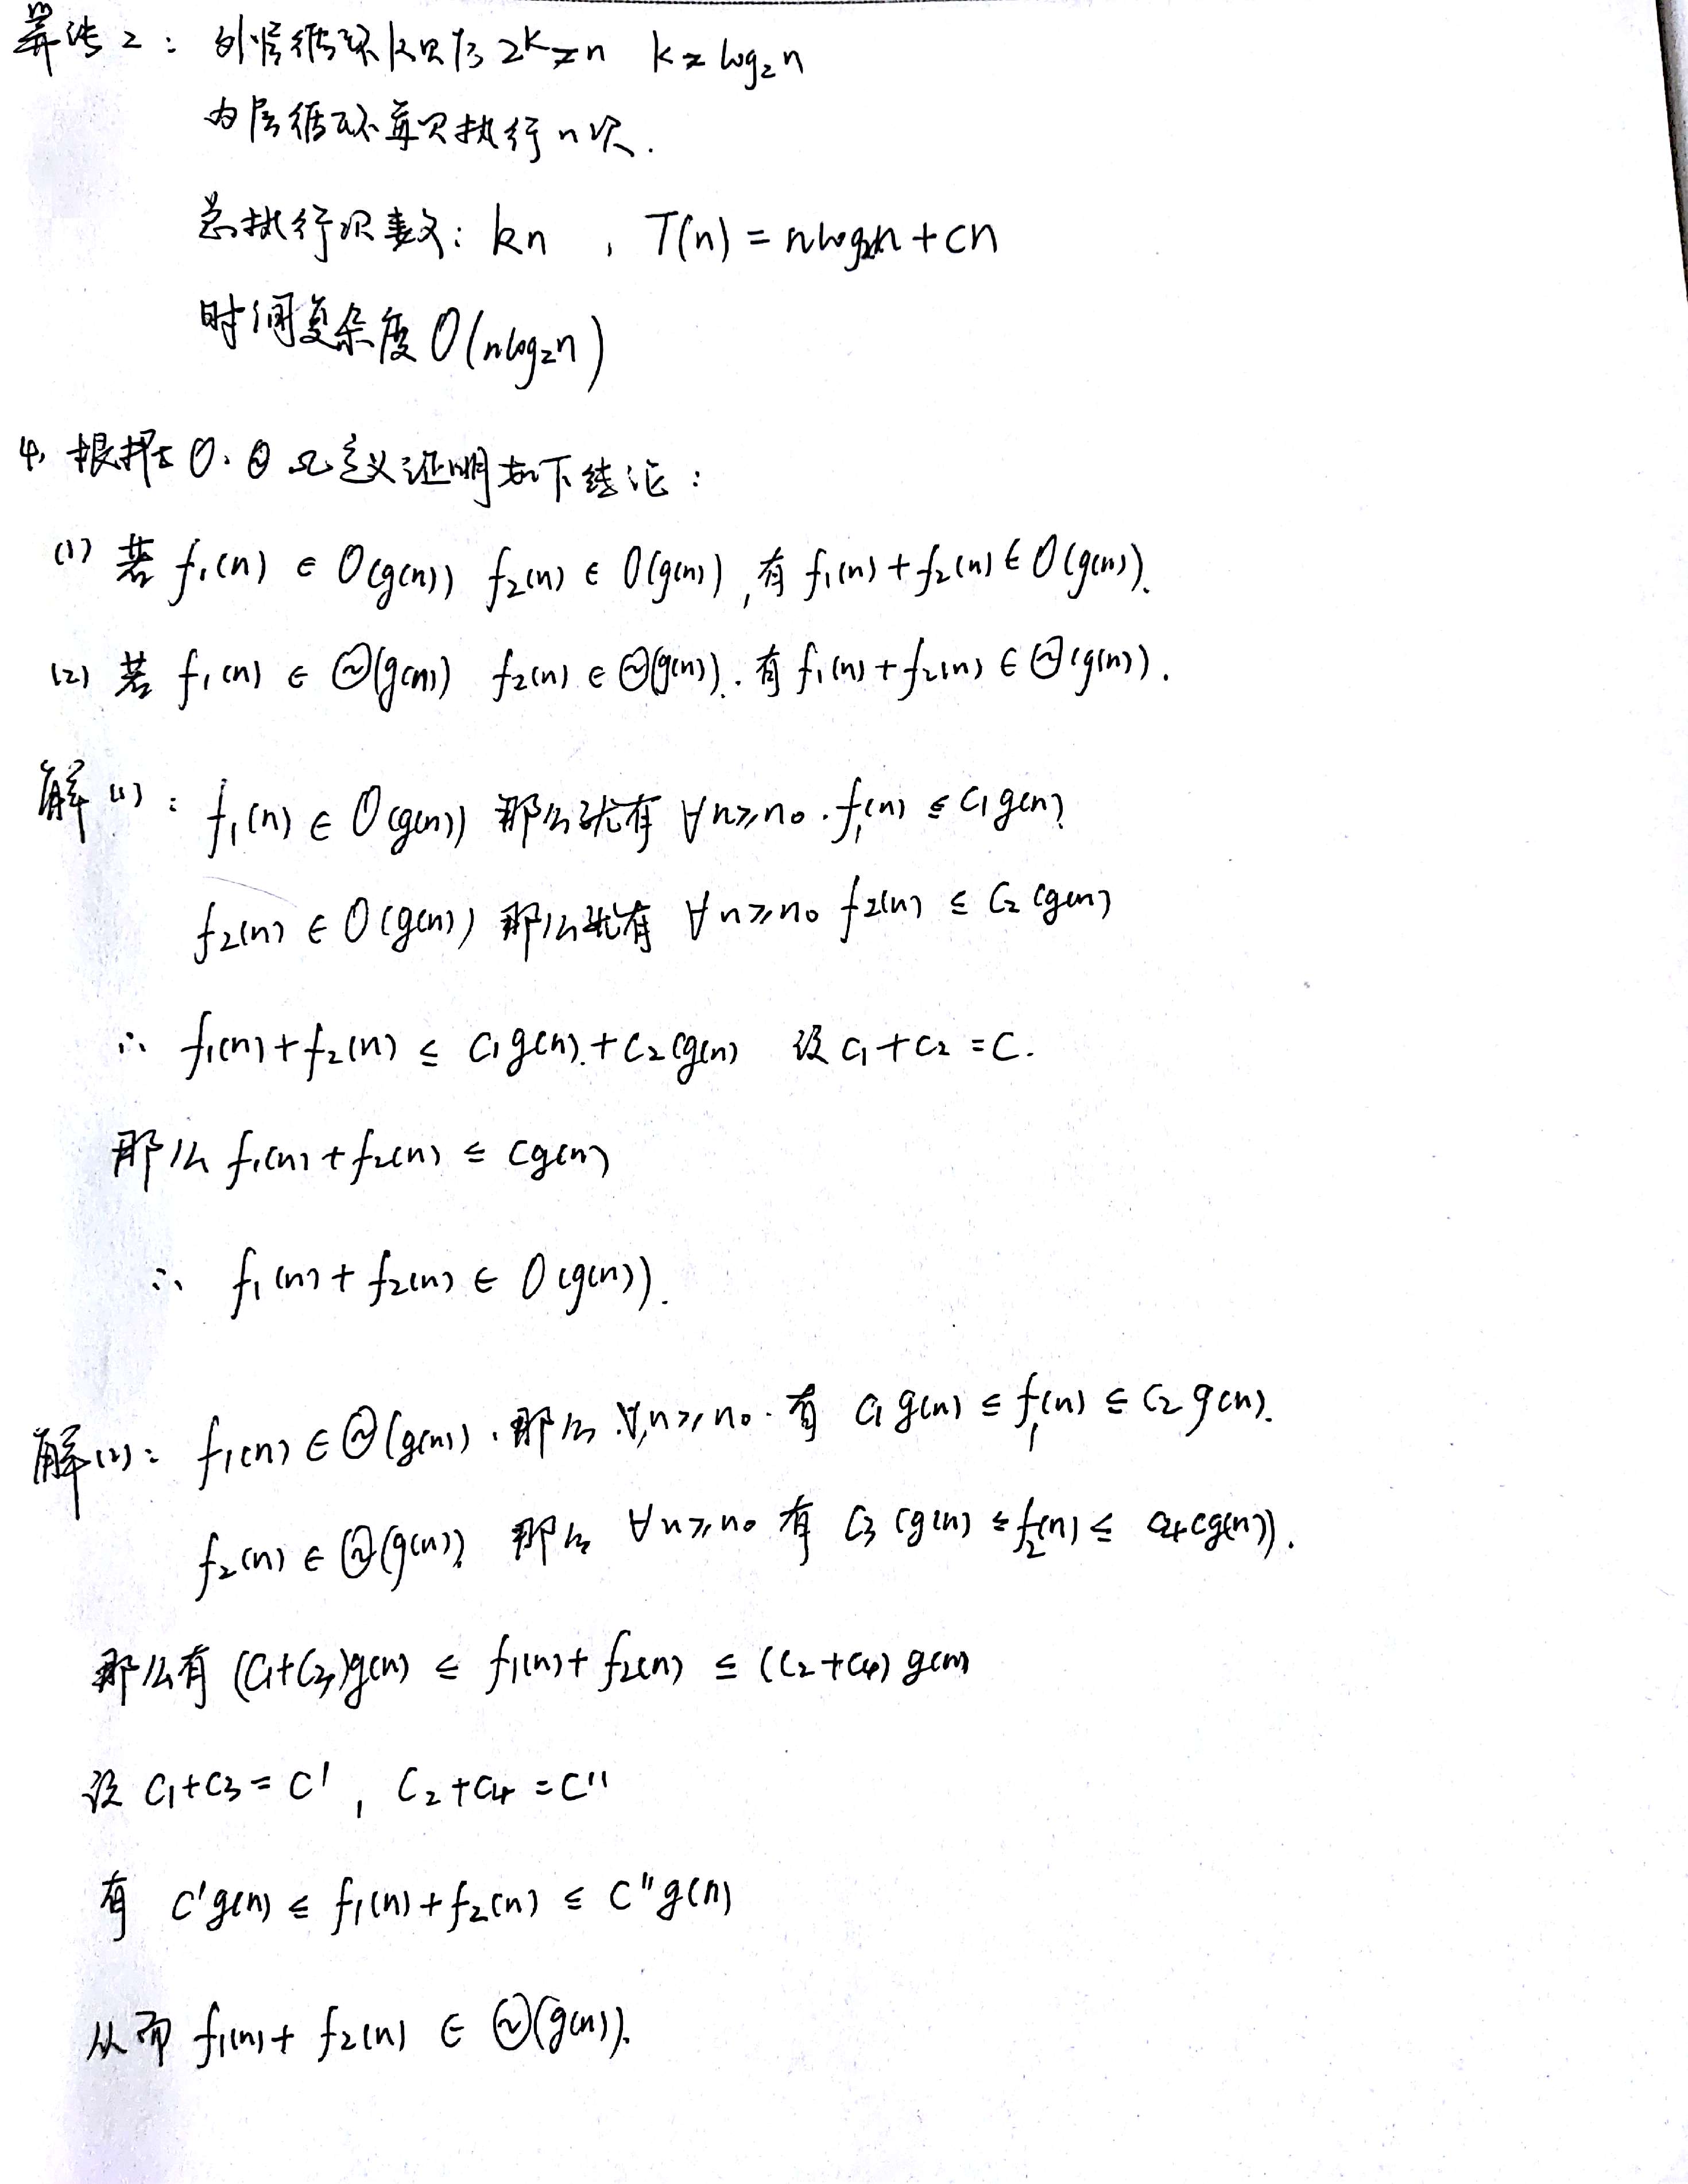 算法2：外层循环k只为2^k≥n k≥log₂n
内层循环每次执行n次.
总执行次数：kn , T(n)=nlog₂n+cn
时间复杂度O(nlog₂n)
4. 根据O、Θ Ω定义证明如下结论：
(1) 若 f₁(n) ∈ O(g(n)) f₂(n) ∈ O(g(n)), 有 f₁(n)+f₂(n)∈O(g(n)).
(2) 若 f₁(n) ∈ Θ(g(n)) f₂(n) ∈ Θ(g(n)). 有 f₁(n)+f₂(n) ∈ Θ(g(n)).
解(1)：f₁(n) ∈ O(g(n)) 那么就有 ∀n≥n₀. f₁(n) ≤ C₁g(n)
f₂(n) ∈ O(g(n)) 那么就有 ∀n≥n₀ f₂(n) ≤ C₂(g(n)
∴ f₁(n)+f₂(n) ≤ C₁g(n).+C₂(g(n) 设 C₁+C₂=C.
那么 f₁(n)+f₂(n) ≤ Cg(n)
∴ f₁(n)+f₂(n) ∈ O(g(n)).
解(2)：f₁(n) ∈ Θ(g(n)). 那么 ∀n≥n₀. 有 C₁g(n) ≤ f₁(n) ≤ C₂g(n).
f₂(n) ∈ Θ(g(n)) 那么 ∀n≥n₀ 有 C₃(g(n) ≤ f₂(n) ≤ C₄(g(n)).
那么有 (C₁+C₃)g(n) ≤ f₁(n)+f₂(n) ≤ (C₂+C₄)g(n)
设 C₁+C₃=C', C₂+C₄=C''
有 C'g(n) ≤ f₁(n)+f₂(n) ≤ C''g(n)
从而 f₁(n)+f₂(n) ∈ Θ(g(n)).